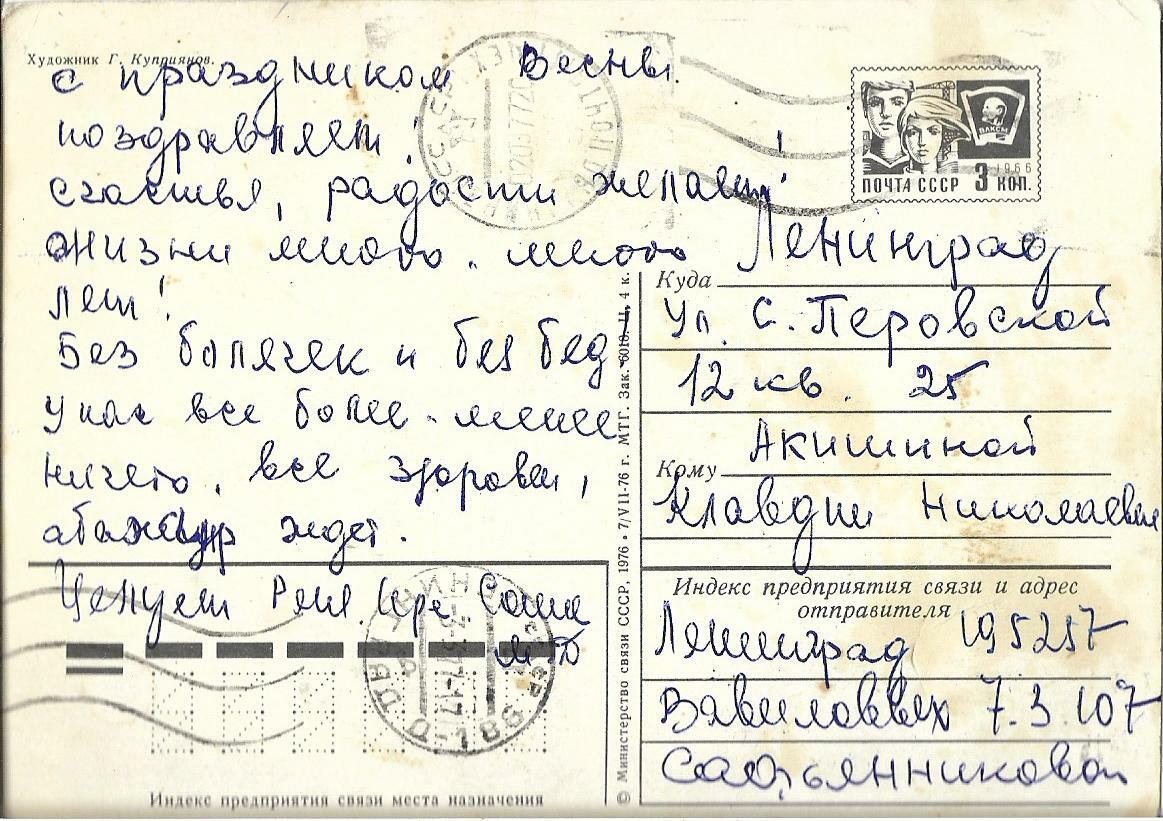 Художник Г. Куприянов.
С праздником Весны
поздравляем!
счастья, радости желаем!
жизни много-много
лет!
Без болячек и без бед
У нас все более-менее
ничего, все здоровы,
абажур ждет.
Целуем Рая Саша
ПОЧТА СССР 3 КОП.
1966
ВЛКСМ
Куда Ленинград
ул. С. Перовской
12 кв. 25
Кому Акишиной
Клавдии Николаевне
Индекс предприятия связи и адрес
отправителя
Ленинград 195257
Вавиловых 7.3.107
Сафьянниковой
Индекс предприятия связи места назначения
© Министерство связи СССР, 1976 • 7/VII-76 г. МТГ. Зак. 6018. Ц. 4 к.